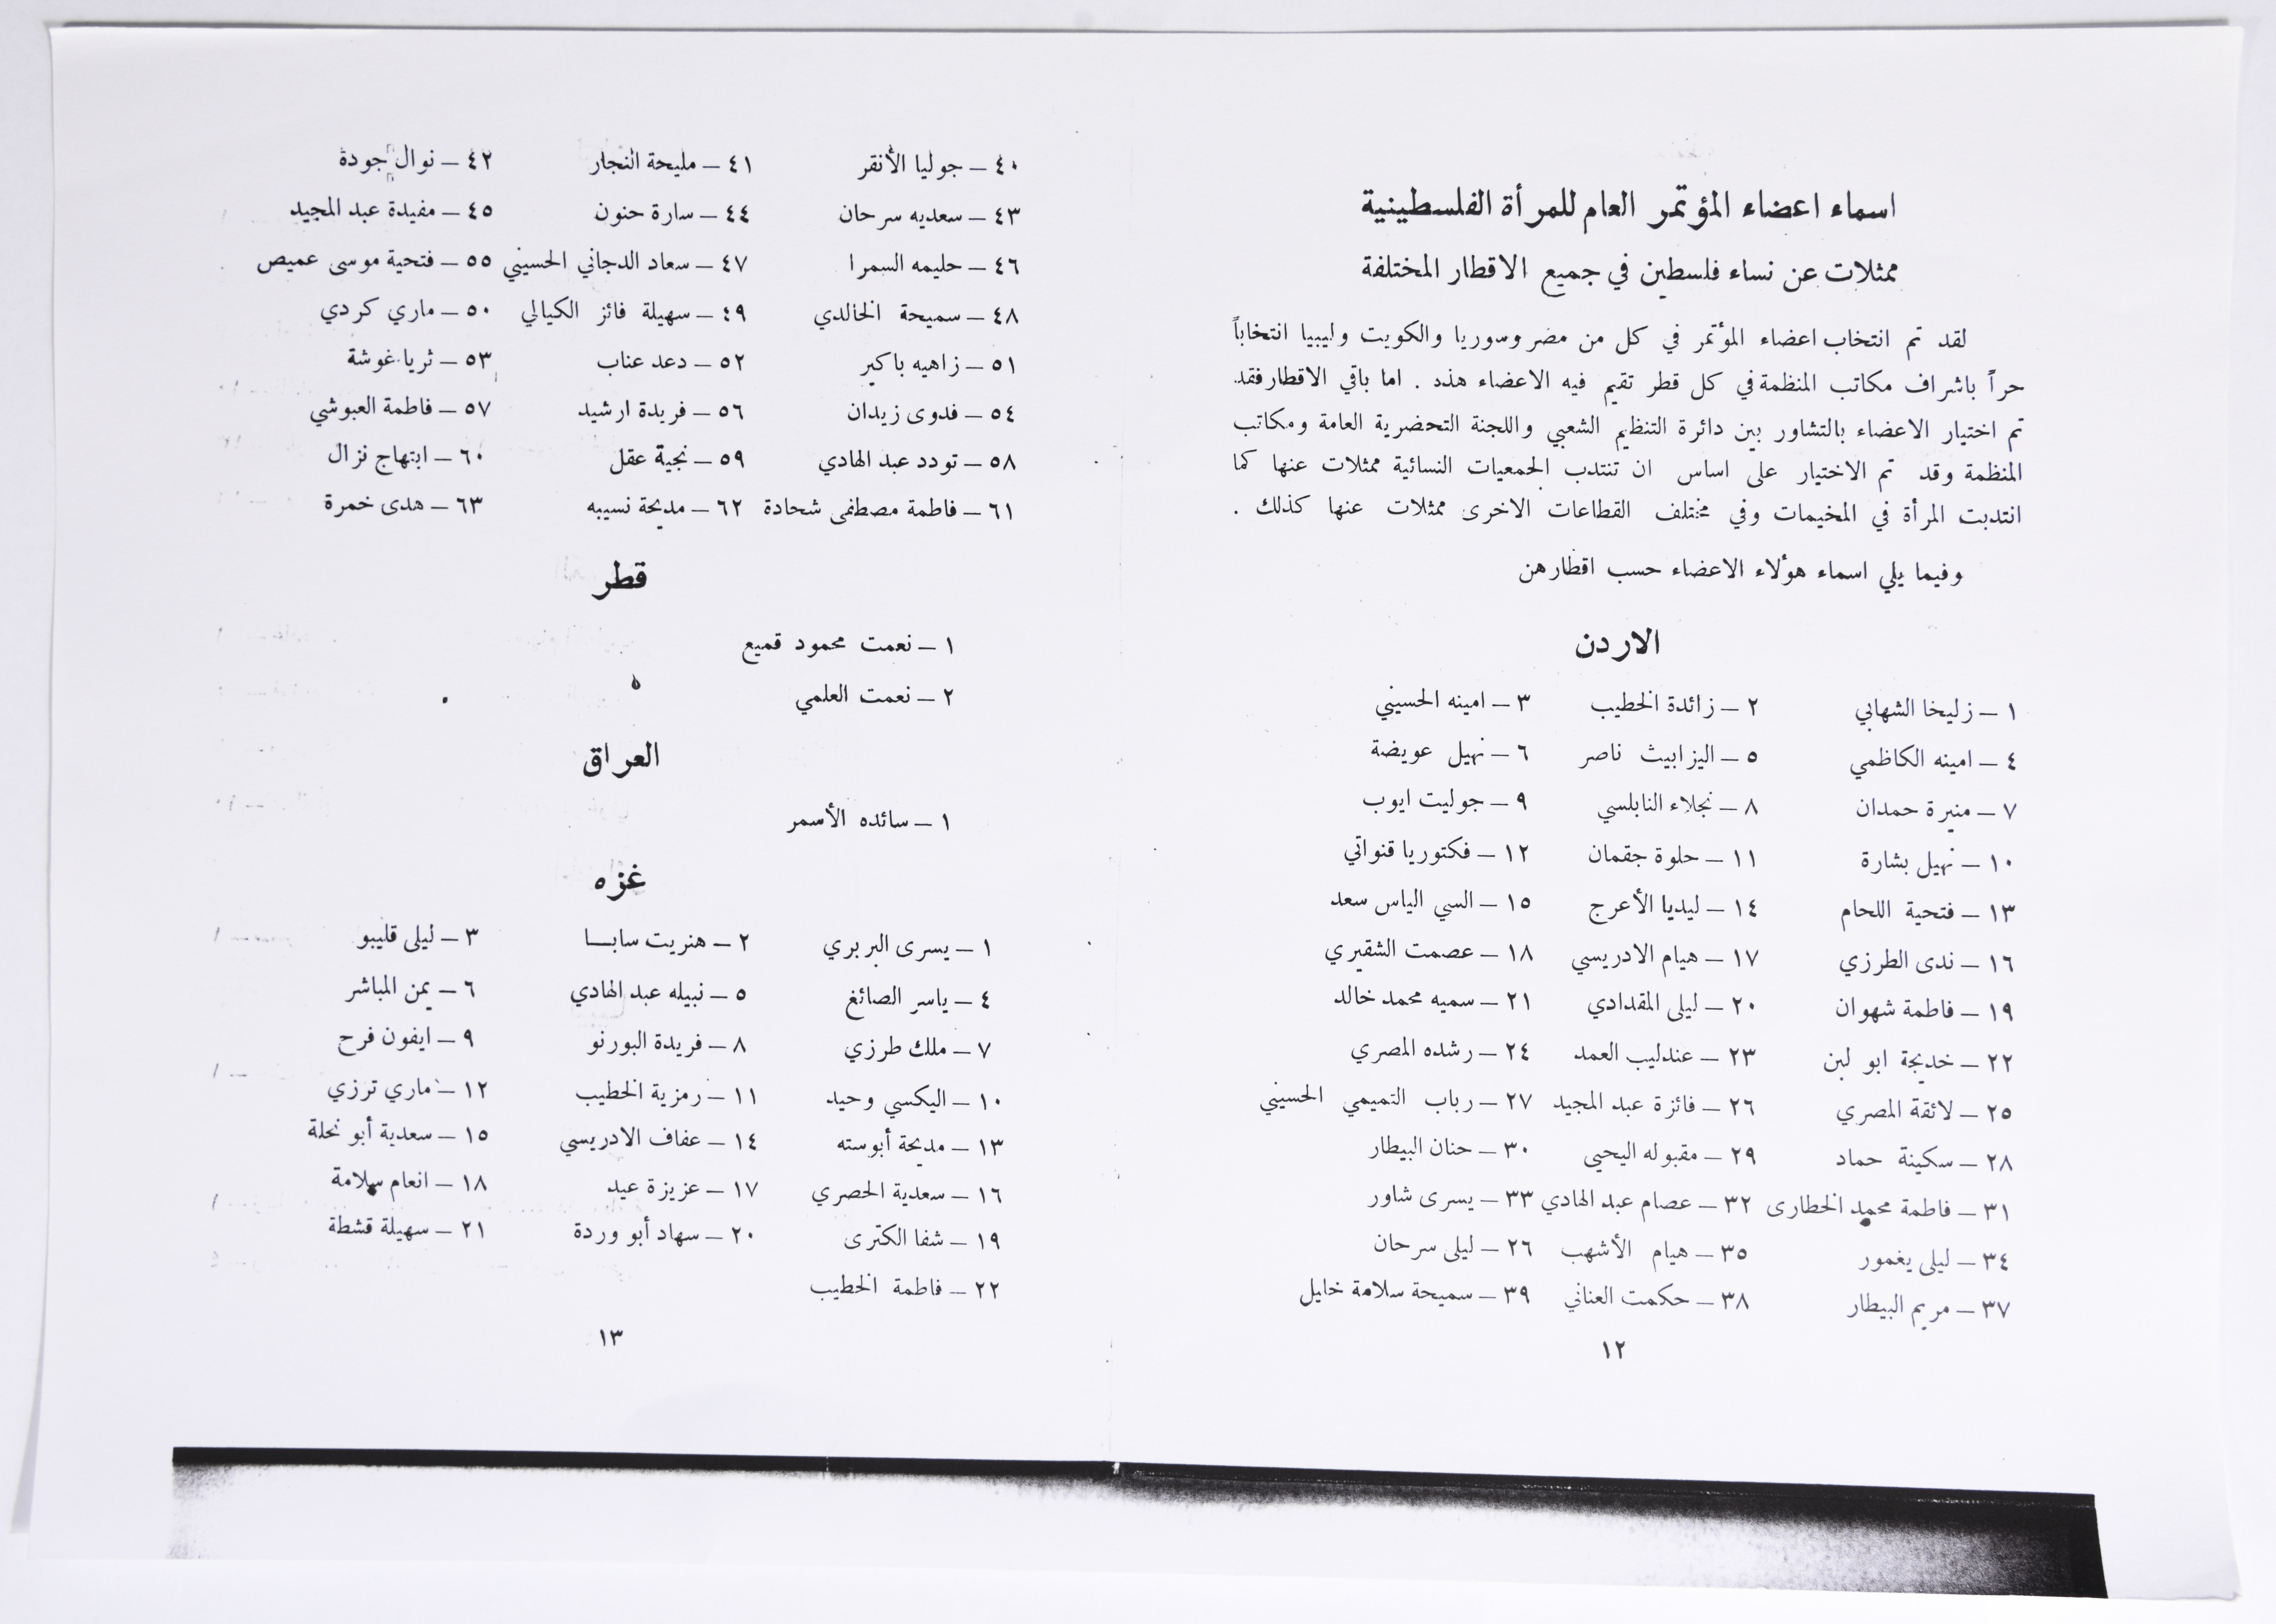 اسماء اعضاء المؤتمر العام للمرأة الفلسطينية
ممثلات عن نساء فلسطين في جميع الاقطار المختلفة
لقد تم انتخاب اعضاء المؤتمر في كل من مصر وسوريا والكويت وليبيا انتخاباً
حراً باشراف مكاتب المنظمة في كل قطر تقيم فيه الاعضاء هذه . اما باقي الاقطار فقد
تم اختيار الاعضاء بالتشاور بين دائرة التنظيم الشعبي واللجنة التحضرية العامة ومكاتب
المنظمة وقد تم الاختيار على اساس ان تنتدب الجمعيات النسائية ممثلات عنها كما
انتدبت المرأة في المخيمات وفي مختلف القطاعات الاخرى ممثلات عنها كذلك .
وفيما يلي اسماء هؤلاء الاعضاء حسب اقطارهن
الاردن
١ – زليخا الشهابي ٢ – زائدة الخطيب ٣ – امينه الحسيني
٤ – امينه الكاظمي ٥ – اليزابيث ناصر ٦ – نهيل عويضة
٧ – منيرة حمدان ٨ – نجلاء النابلسي ٩ – جوليت ايوب
١٠ – نهيل بشارة ١١ – حلوة جقمان ١٢ – فكتوريا قنواتي
١٣ – فتحية اللحام ١٤ – ليديا الأعرج ١٥ – السي الياس سعد
١٦ – ندى الطرزي ١٧ – هيام الادريسي ١٨ – عصمت الشقيري
١٩ – فاطمة شهوان ٢٠ – ليلى المقدادي ٢١ – سميه محمد خالد
٢٢ – خديجة ابو لبن ٢٣ – عندليب العمد ٢٤ – رشده المصري
٢٥ – لائقة المصري ٢٦ – فائزة عبد المجيد ٢٧ – رباب التميمي الحسيني
٢٨ – سكينة حماد ٢٩ – مقبوله اليحيى ٣٠ – حنان البيطار
٣١ – فاطمة محمد الخطارى ٣٢ – عصام عبد الهادي ٣٣ – يسرى شاور
٣٤ – ليلى يغمور ٣٥ – هيام الأشهب ٢٦ – ليلى سرحان
٣٧ – مريم البيطار ٣٨ – حكمت العناني ٣٩ – سميحة سلامة خليل
١٢
٤٠ – جوليا الأنقر ٤١ – مليحة النجار ٤٢ – نوال جودة
٤٣ – سعديه سرحان ٤٤ – سارة حنون ٤٥ – مفيدة عبد المجيد
٤٦ – حليمه السمرا ٤٧ – سعاد الدجاني الحسيني ٥٥ – فتحية موسى عميص
٤٨ – سميحة الخالدي ٤٩ – سهيلة فائز الكيالي ٥٠ – ماري كردي
٥١ – زاهيه باكير ٥٢ – دعد عناب ٥٣ – ثريا غوشة
٥٤ – فدوى زيدان ٥٦ – فريدة ارشيد ٥٧ – فاطمة العبوشي
٥٨ – تودد عبد الهادي ٥٩ – نجية عقل ٦٠ – ابتهاج نزال
٦١ – فاطمة مصطفى شحادة ٦٢ – مديحة نسيبه ٦٣ – هدى خمرة
قطر
١ – نعمت محمود قميع
٢ – نعمت العلمي
العراق
١ – سائده الأسمر
غزه
١ – يسرى البربري ٢ – هنريت سابا ٣ – ليلى قليبو
٤ – ياسر الصائغ ٥ – نبيله عبد الهادي ٦ – يمن المباشر
٧ – ملك طرزي ٨ – فريدة البورنو ٩ – ايفون فرح
١٠ – اليكسي وحيد ١١ – رمزية الخطيب ١٢ – ماري ترزي
١٣ – مديحة أبوسته ١٤ – عفاف الادريسي ١٥ – سعدية أبو نحلة
١٦ – سعدية الحصري ١٧ – عزيزة عيد ١٨ – انعام سلامة
١٩ – شفا الكترى ٢٠ – سهاد أبو وردة ٢١ – سهيلة قشطة
٢٢ – فاطمة الخطيب
١٣